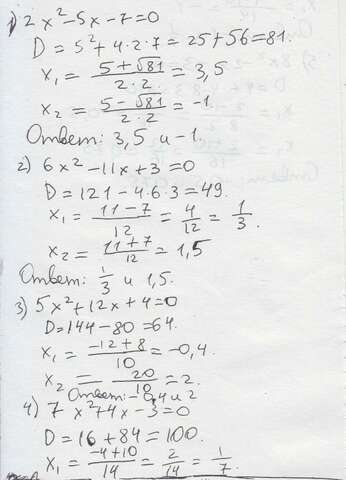 1) 2x² - 5x - 7 = 0
D = 5² + 4 · 2 · 7 = 25 + 56 = 81.
x₁ = (5 + √81)/(2 · 2) = 3,5
x₂ = (5 - √81)/(2 · 2) = -1.
Ответ: 3,5 и -1.
2) 6x² - 11x + 3 = 0
D = 121 - 4 · 6 · 3 = 49.
x₁ = (11 - 7)/12 = 4/12 = 1/3.
x₂ = (11 + 7)/12 = 1,5
Ответ: 1/3 и 1,5.
3) 5x² + 12x + 4 = 0
D = 144 - 80 = 64.
x₁ = (-12 + 8)/10 = -0,4.
x₂ = 20/10 = 2.
Ответ: -0,4 и 2
4) 7x² + 4x - 3 = 0
D = 16 + 84 = 100.
x₁ = (-4 + 10)/14 = 2/14 = 1/7.